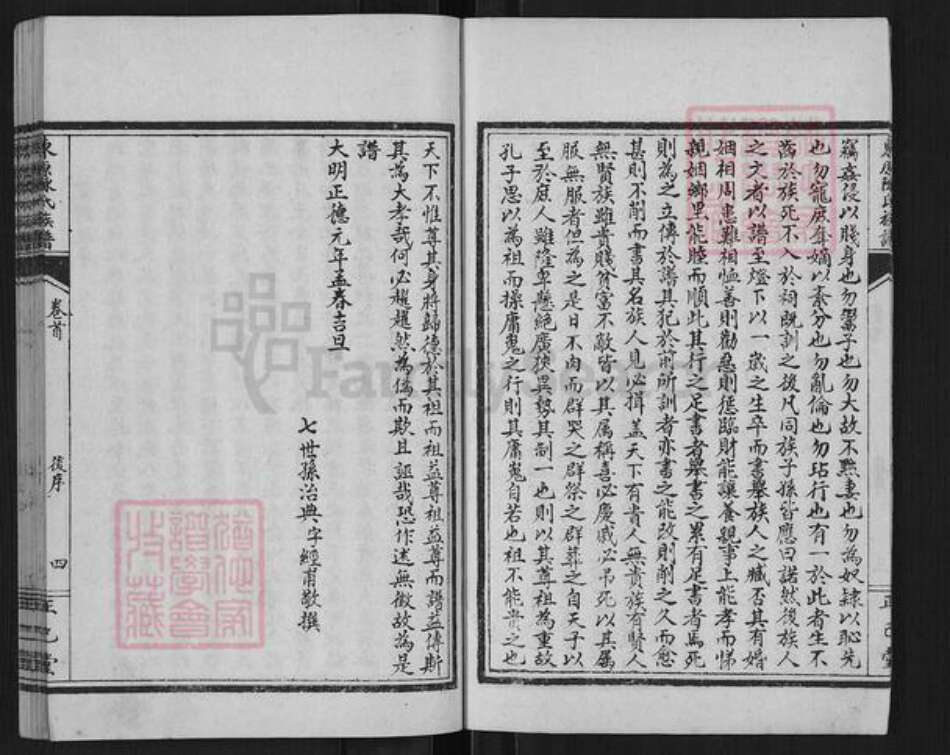 竊姦侵以賤身也勿鬻子也勿大故不黜妻也勿為奴隸以恥先
也勿寵庶耸嫡以紊分也勿亂倫也勿玷行也有一於此者生不
齒於族死不入於祠既訓之後凡同族子孫皆應曰諾然後族人
之文者以譜至燈下以一歲之生卒而書舉族人之臧否其有婚
姻相周患難相恤善則勸惡則懲臨財能讓養親事上能孝而悌
親姻鄉里能睦而順此其行之足書者舉書之累有足書者焉死
則為之立傳於譜其犯於前所訓者亦書之能改則削之久而愈
甚則不削而書其名族人見必揖蓋天下有貴人無貴族有賢人
無賢族雖貴賤貧富不敵皆以其属稱喜必慶戚必吊死以其属
服無服者但為之是日不肉而群哭之群祭之群葬之自天子以
至於庶人雖隆卑懸絕廣狹異勢其制一也則以其尊祖為重故
孔子思以為祖而操庸鬼之行則其庸鬼自若也祖不能貴之也
天下不惟尊其身將歸德於其祖而祖益尊祖益尊而譜益傳斯
其為大孝哉何必趦趄然為偽而欺且誣哉恐作述無徵故為是
譜
大明正德元年孟春吉旦
七世孫治典字經甫敬撰
卷首
後序
四
正己堂
東原陳氏族譜
FamilySearch